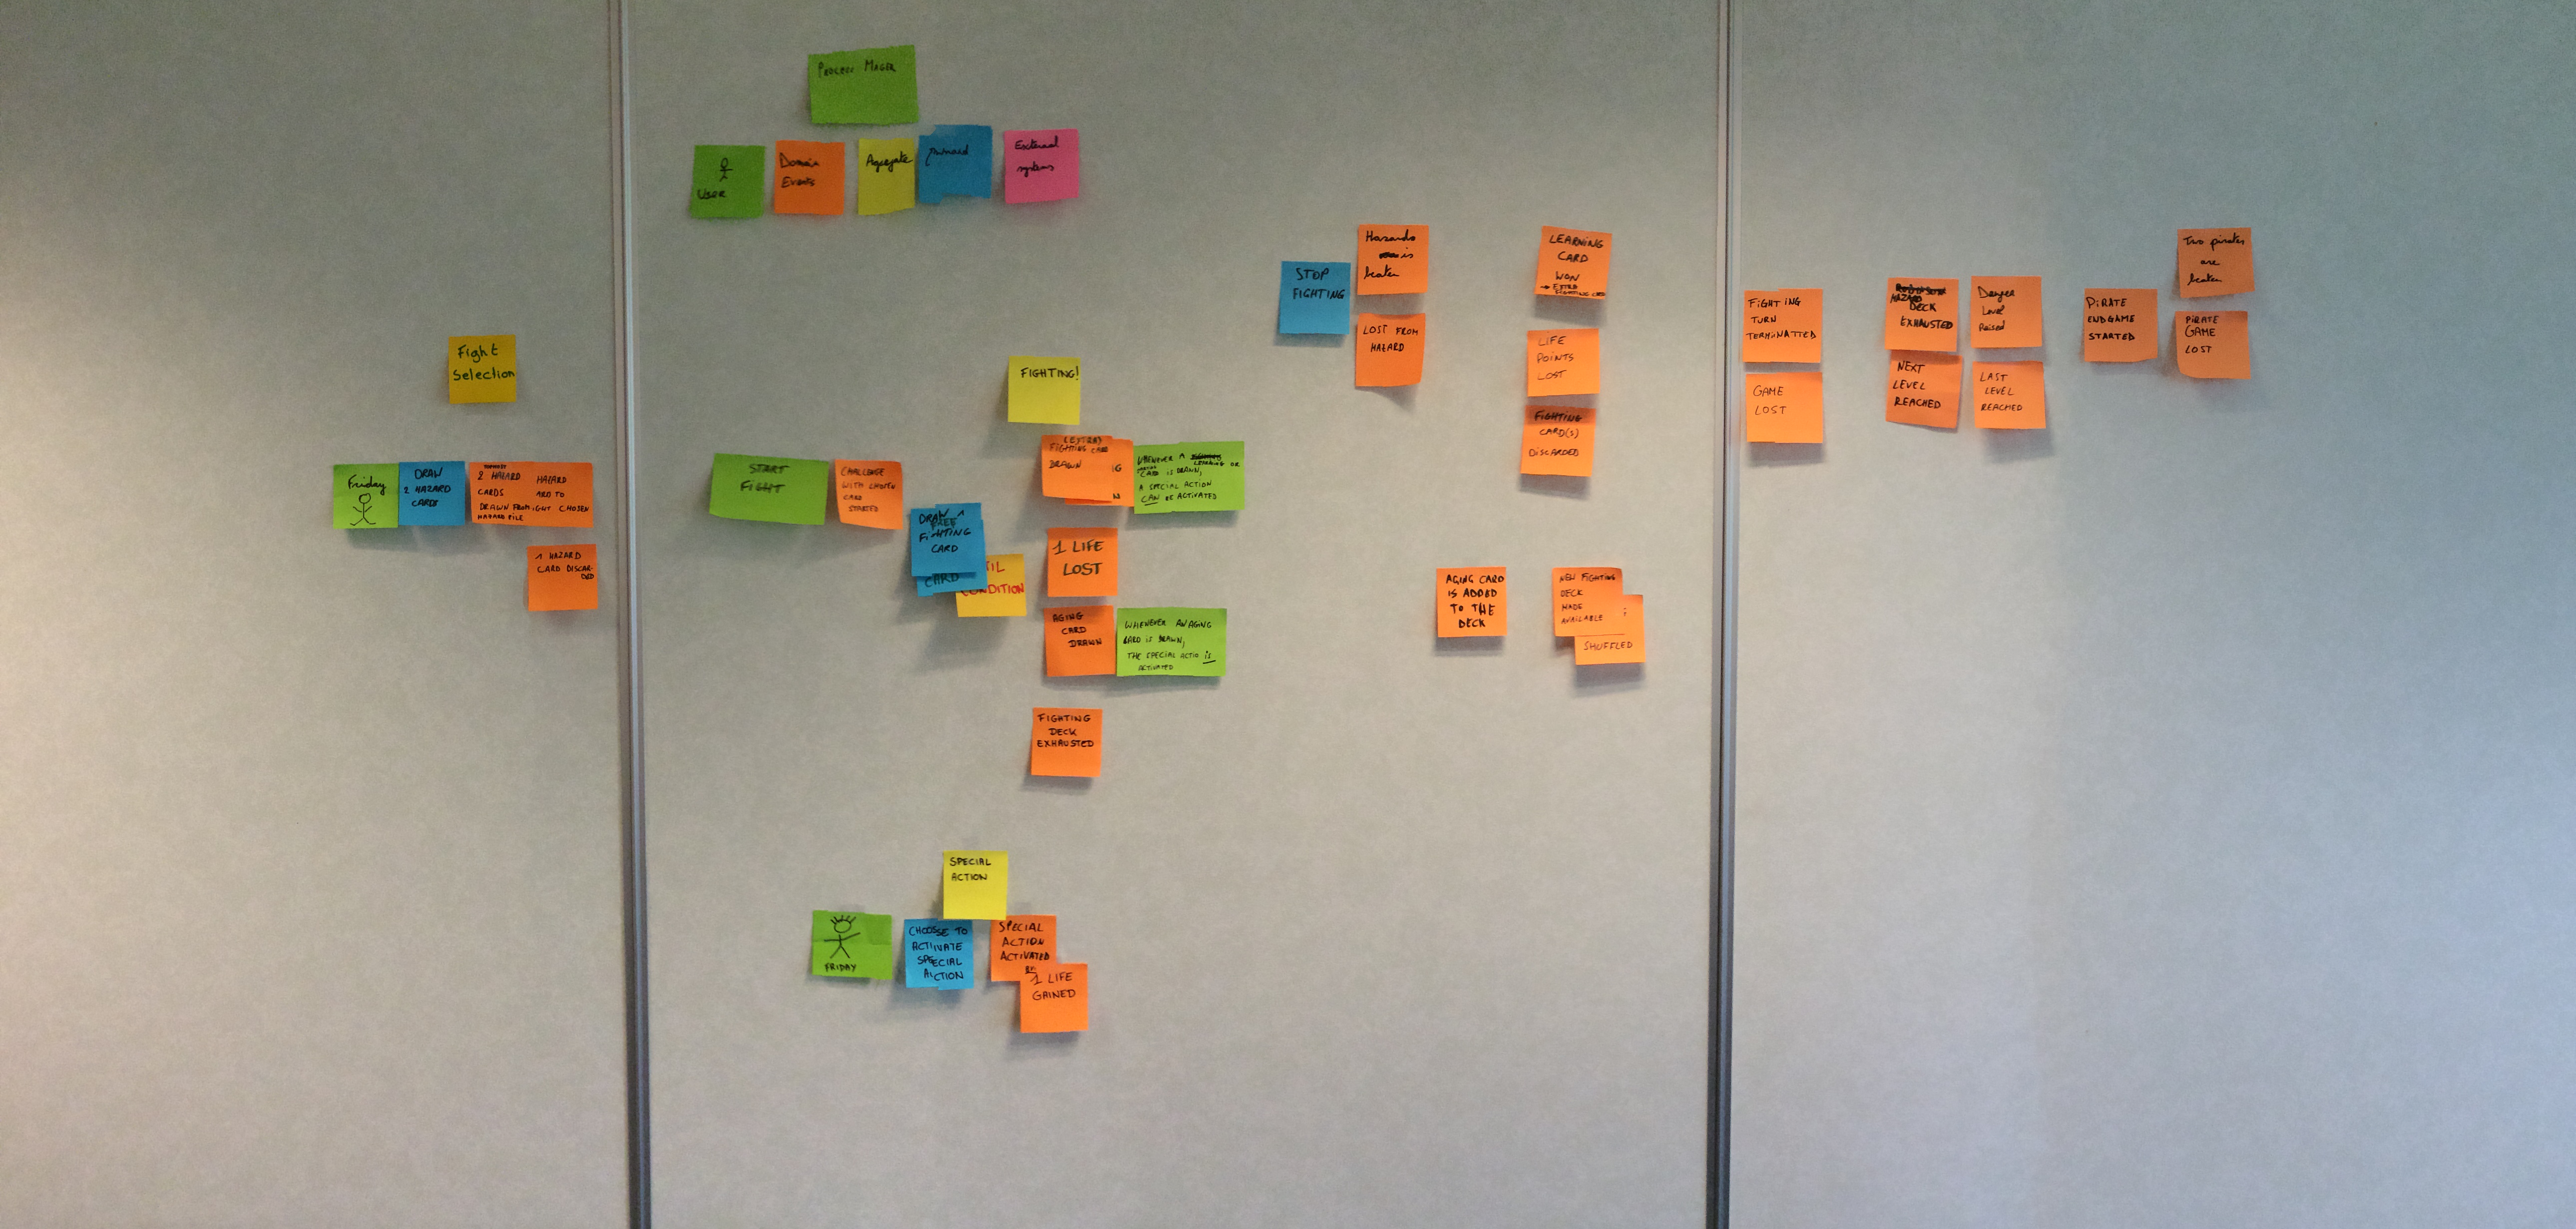 PROCESS MAGER
USER
Domain
Events
Agregate
External
systems
Fight
Selection
Friday
DRAW
2 HAZARD
CARDS
TOPMOST
2 HAZARD
CARDS
DRAWN FROM
HAZARD PILE
HAZARD
ARD TO
IGHT CHOSEN
1 HAZARD
CARD DISCAR-
DED
START
FIGHT
CHALLENGE
WITH CHOSEN
CARD
STARTED
DRAW 1
FREE
FIGHTING
CARD
CARD
TIL
CONDITION
FIGHTING!
FIGHTING CARD
DRAWN
IG
N
WHENEVER A
LEARNING OR
CARD IS DRAWN,
A SPECIAL ACTION
CAN BE ACTIVATED
1 LIFE
LOST
AGING
CARD
DRAWN
WHENEVER AN AGING
CARD IS DRAWN,
THE SPECIAL ACTIO IS
ACTIVATED
FIGHTING
DECK
EXHAUSTED
SPECIAL
ACTION
FRIDAY
CHOOSSE TO
ACTIVATE
SPECIAL
ACTION
SPECIAL
ACTION
ACTIVATED
1 LIFE
GAINED
STOP
FIGHTING
Hazards
is
beaten
LOST FROM
HAZARD
LEARNING
CARD
WON
→ EXTRA
FIGHTING CARD
LIFE
POINTS
LOST
FIGHTING
CARD(S)
DISCARDED
AGING CARD
IS ADDED
TO THE
DECK
NEW FIGHTING
DECK
MADE
AVAILABLE
SHUFFLED
FIGHTING
TURN
TERMINATTED
GAME
LOST
HAZARD
DECK
EXHAUSTED
NEXT
LEVEL
REACHED
Danger
Level
Raised
LAST
LEVEL
REACHED
PIRATE
ENDGAME
STARTED
Two pirates
are
beaten
PIRATE
GAME
LOST